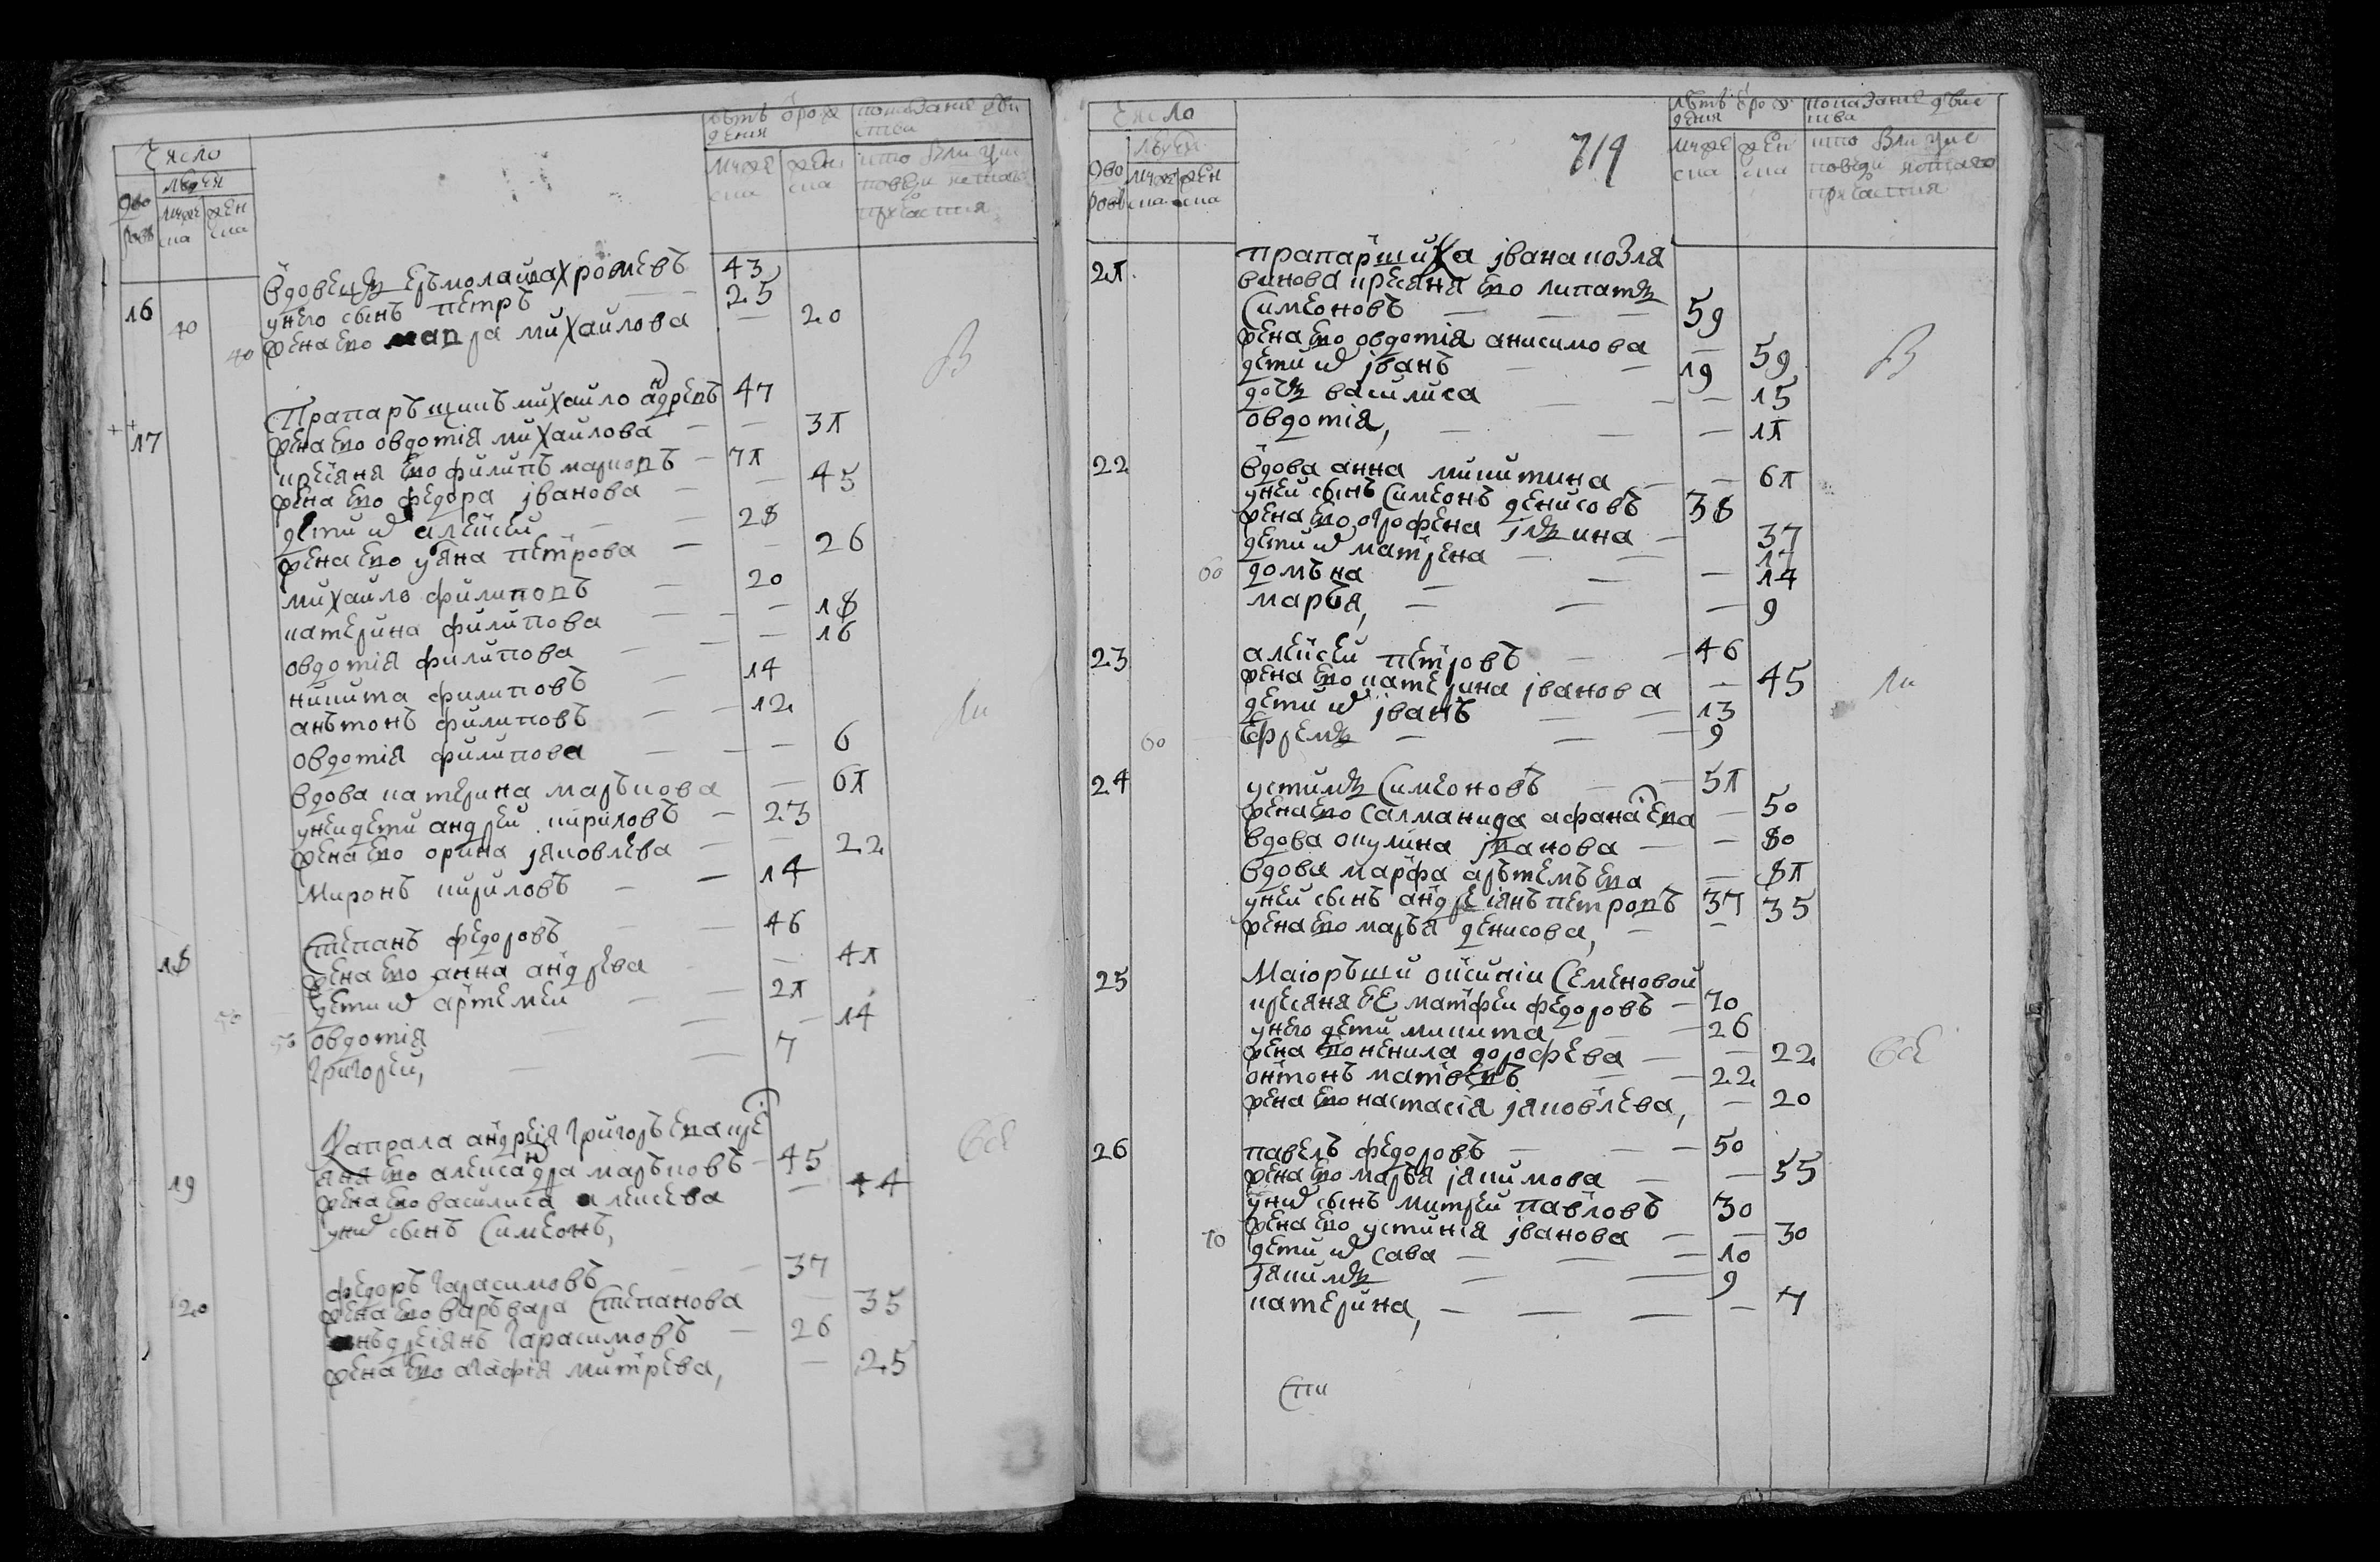 Число
лѣтъ ѿ рож
дения
показание дѣи
ства
людей
дво
ровъ
муже
ска
жен
ска
муже
ска
жен
ска
кто были у ис
поведи и стаго
причастия
16 вдовецъ ермолай ахромѣевъ 43
у него сынъ петръ — 25
40 40 жена ево марја михайлова — 20
В
17 Прапоръщикъ михайло адреевъ 47
жена ево овдотія михайлова — — 31
крестяня ево филипъ марковъ — 71
жена ево федора јванова — — 45
дети их алексей — — 28
жена ево уляна петрова — — 26
михайло филиповъ — 20
катерина филипова — — — 18
овдотія филипова — — — 16
никита филиповъ — 14
анътонъ филиповъ — — 12
овдотія филипова — — — 6
ли
вдова катерина маръкова — 61
у неи дети андрей кириловъ — 23
жена ево орина јяковлева — — 22
Миронъ кириловъ — — 14
18 Степанъ федоровъ — — 46
жена ево анна андрева — — 41
дети их артемей — — 21
50 50 овдотія — — — 14
Григорей, — — 7
Капрала андреія Григоръева кре
19 стяня ево александра маръковъ — 45
жена ево василиса алексева — 44
у них сынъ Симеонъ,
все
20 федоръ Гарасимовъ — — 37
жена ево варъвара Степанова — 35
анъдреіянъ Гарасимовъ — 26
жена ево агафія митрева, — 25
719
Число
людей
дво
ровъ
муже
ска
жен
ска
лѣтъ ѿ рож
дения
муже
ска
жен
ска
показание дѣис
тва
кто были у ис
поведи и стаго
причастия
21 прапарщика јвана козля
винова крестяня ево липатъ
Симеоновъ — — — 59
жена ево овдотія анисимова — 59
дети их јванъ — — 19
дочь василиса — — — 15
овдотія, — — — 11
В
22 вдова анна микитина — — 61
у ней сынъ Симеонъ денисовъ 38
жена ево огрофена јльина — 37
дети их матрена — — 17
60 домъна — — — 14
маръя, — — — 9
23 алексей петровъ — — 46
жена ево катерина јванова — 45
дети их јванъ — — 13
60 Ефремъ — — — 9
ли
24 устимъ Симеоновъ — — 51
жена ево Салманида афанасева — 50
вдова окулина јванова — — 80
вдова марфа аръtемъева — 81
у ней сынъ андреіянъ петровъ 37
жена ево маръя денисова, — — 35
25 Маіоръши ѯіеніи Семеновой
крестяня ее матфей федоровъ — 70
у него дети микита — — 26
жена ево ненила дорофева — — 22
онтонъ матвеевъ — — 22
жена ево настасія јяковлева, — 20
все
26 павелъ федоровъ — — — 50
жена ево маръя јякимова — — 55
у них сынъ митрей павловъ 30
70 жена ево устинія јванова — — 30
дети их сава — — — 10
јякимъ — — 9
катерина, — — — — 7
Сти